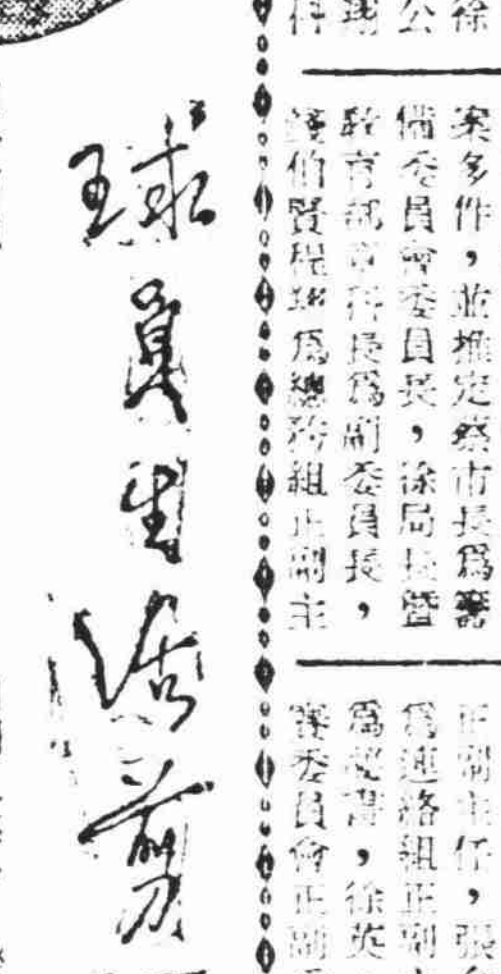 徐
公
件
案多件，並推定蔡市長爲籌
備委員會委員長，徐局長暨
教育部章科長爲副委員長，
錢伯賢程爲總務組正副主
正副主任，張
爲連絡組正副
爲秘書，徐英
賽委員會正副
球員生活剪